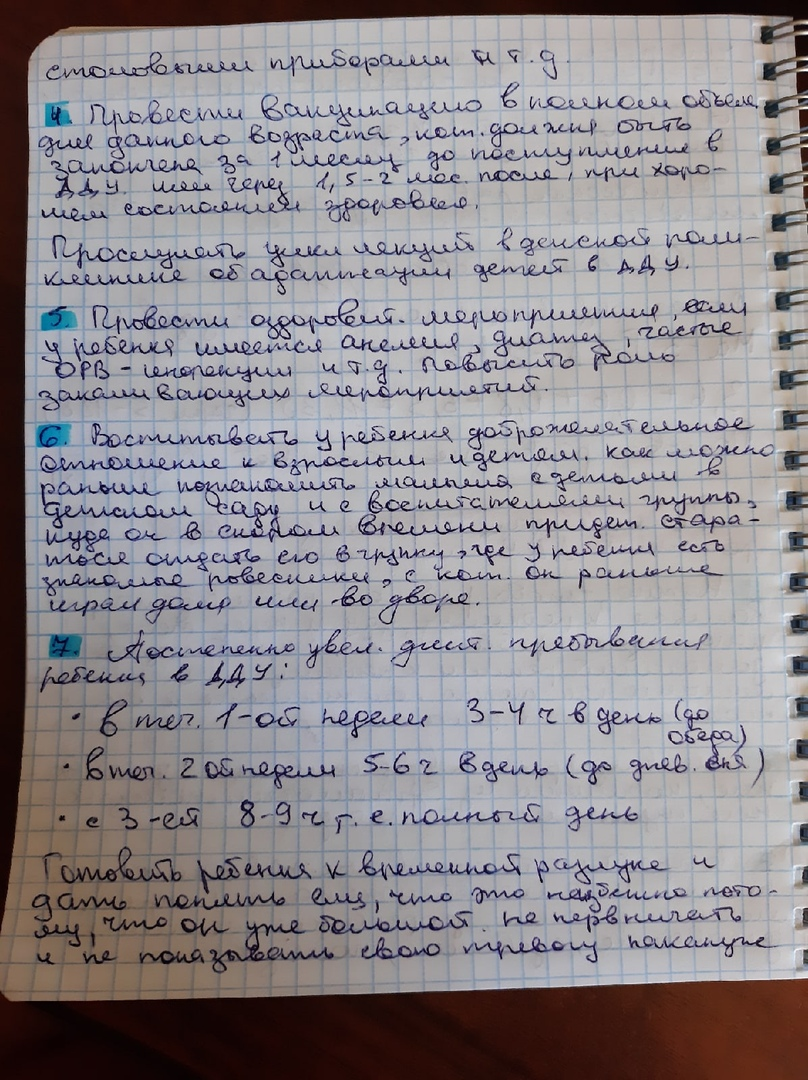 столовыми приборами и т.д.
4. Провести вакцинацию в полном объеме
для данного возраста, кот. должна быть
закончена за 1 месяц до поступления в
ДДУ. или через 1,5-2 мес. после, при хоро-
шем состоянии здоровья.
Прослушать цикл лекций в детской поли-
клинике об адаптации детей в ДДУ.
5. Провести оздоровит. мероприятия, если
у ребенка имеется анемия, диатез, частые
ОРВ-инфекции и т.д. Повысить роль
закаливающих мероприятий.
6. Воспитывать у ребенка доброжелательное
отношение к взрослым и детям. как можно
раньше познакомить малыша с детьми в
детском саду и с воспитателями группы,
куда он в скором времени придет. стара-
ться отдать его в группу, где у ребенка есть
знакомые ровесники, с кот. он раньше
играл дома или во дворе.
7. Постепенно увел. длит. пребывания
ребенка в ДДУ:
• в теч. 1-ой недели 3-4 ч в день (до
обеда)
• в теч. 2 ой недели 5-6 ч в день (до днев. сна)
• с 3-ей 8-9 ч т.е. полный день
Готовить ребенка к временной разлуке и
дать понять ему, что это неизбежно пото-
му, что он уже большой. не нервничать
и не показывать свою тревогу накануне